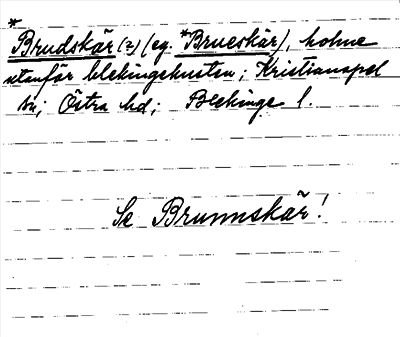 *
Brudskär (?) (eg. *Brueskär), holme
utanför blekingekusten; Kristianopel
sn; Östra hd; Blekinge l.
Se Brunnskär!